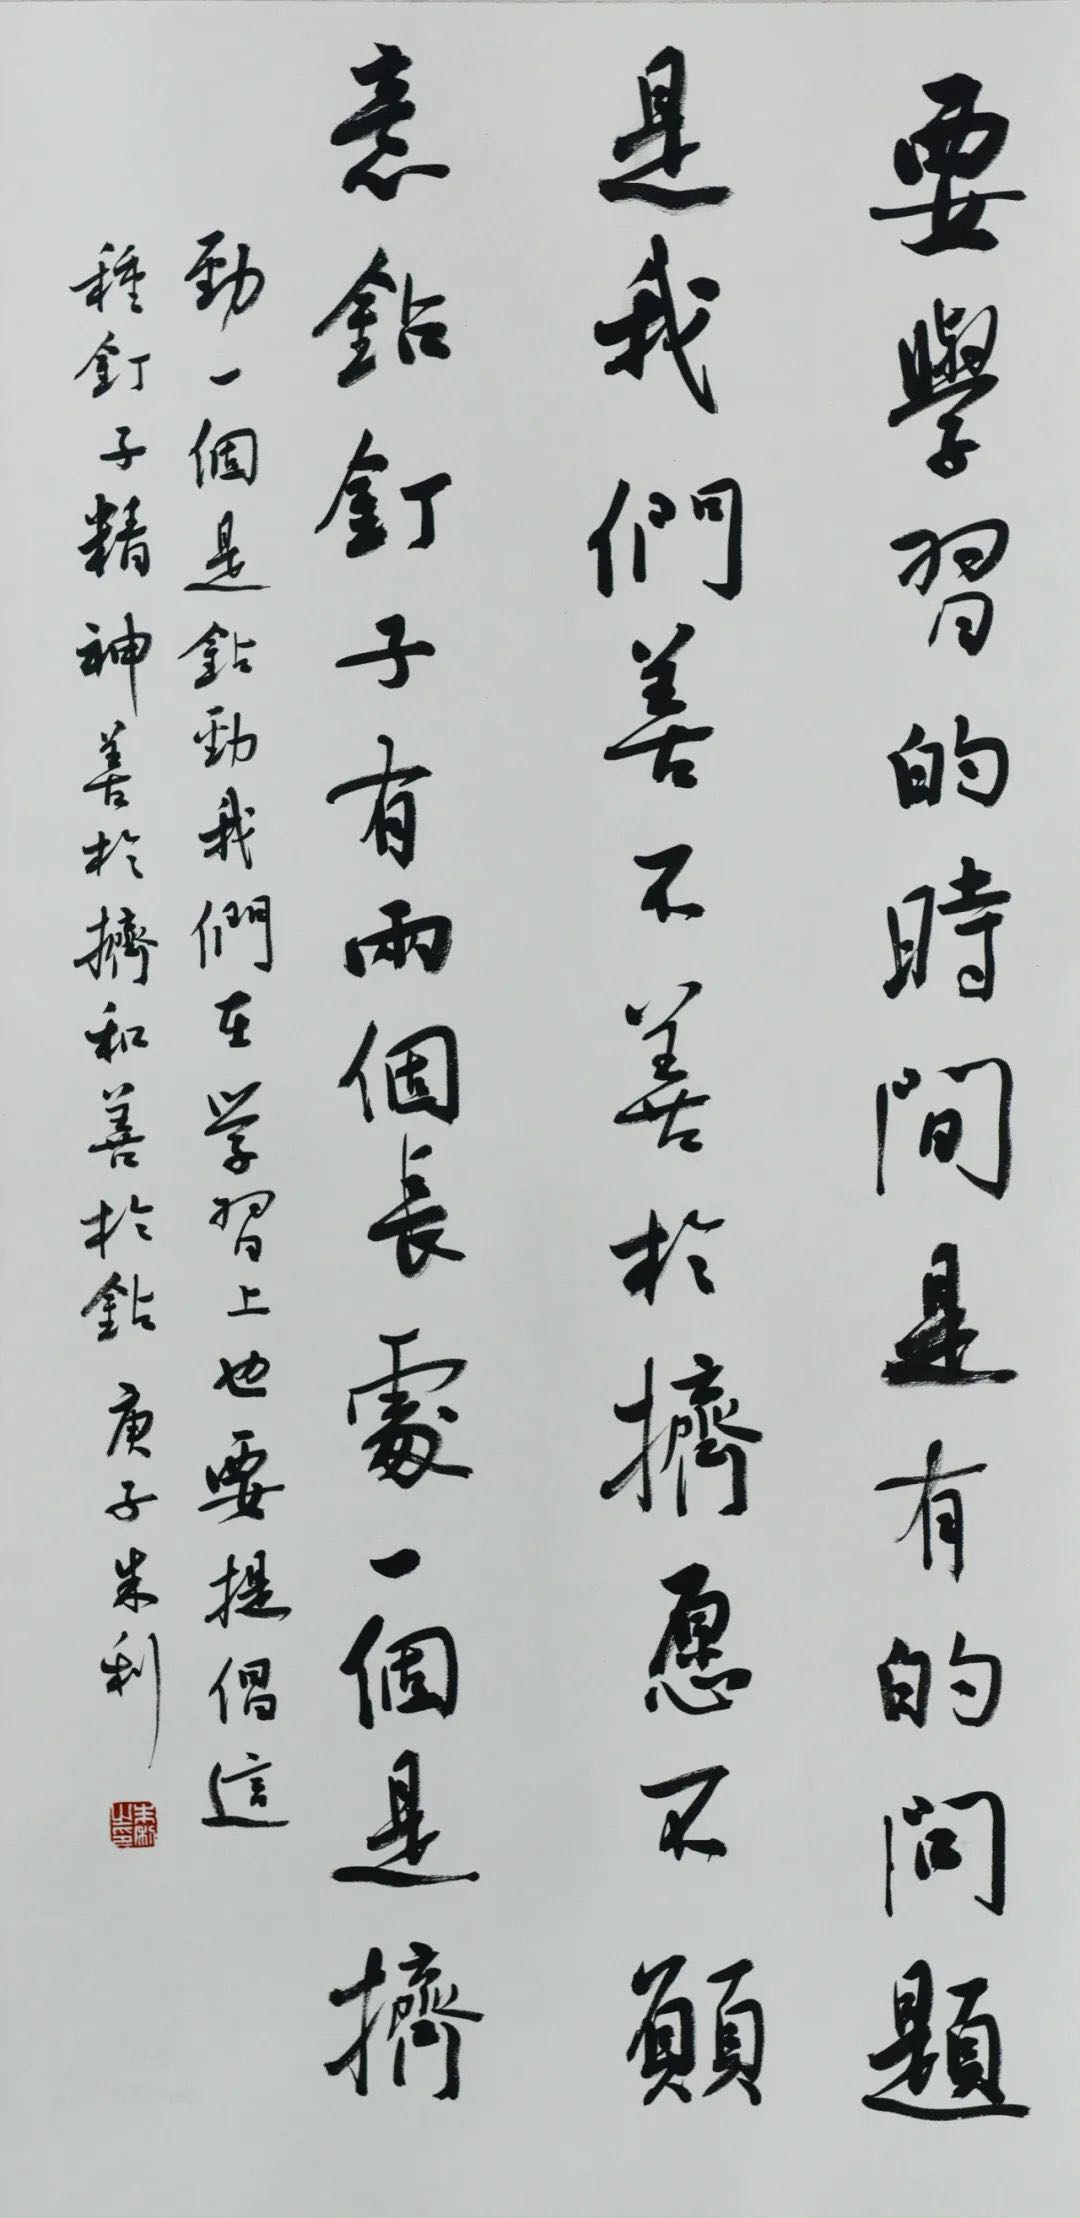 要學習的時間是有的問題
是我們善不善於擠愿不願
意鈷釘子有兩個長處一個是擠
勁一個是鈷勁我們在学習上也要提倡這
種釘子精神善於擠和善於鈷 庚子朱利